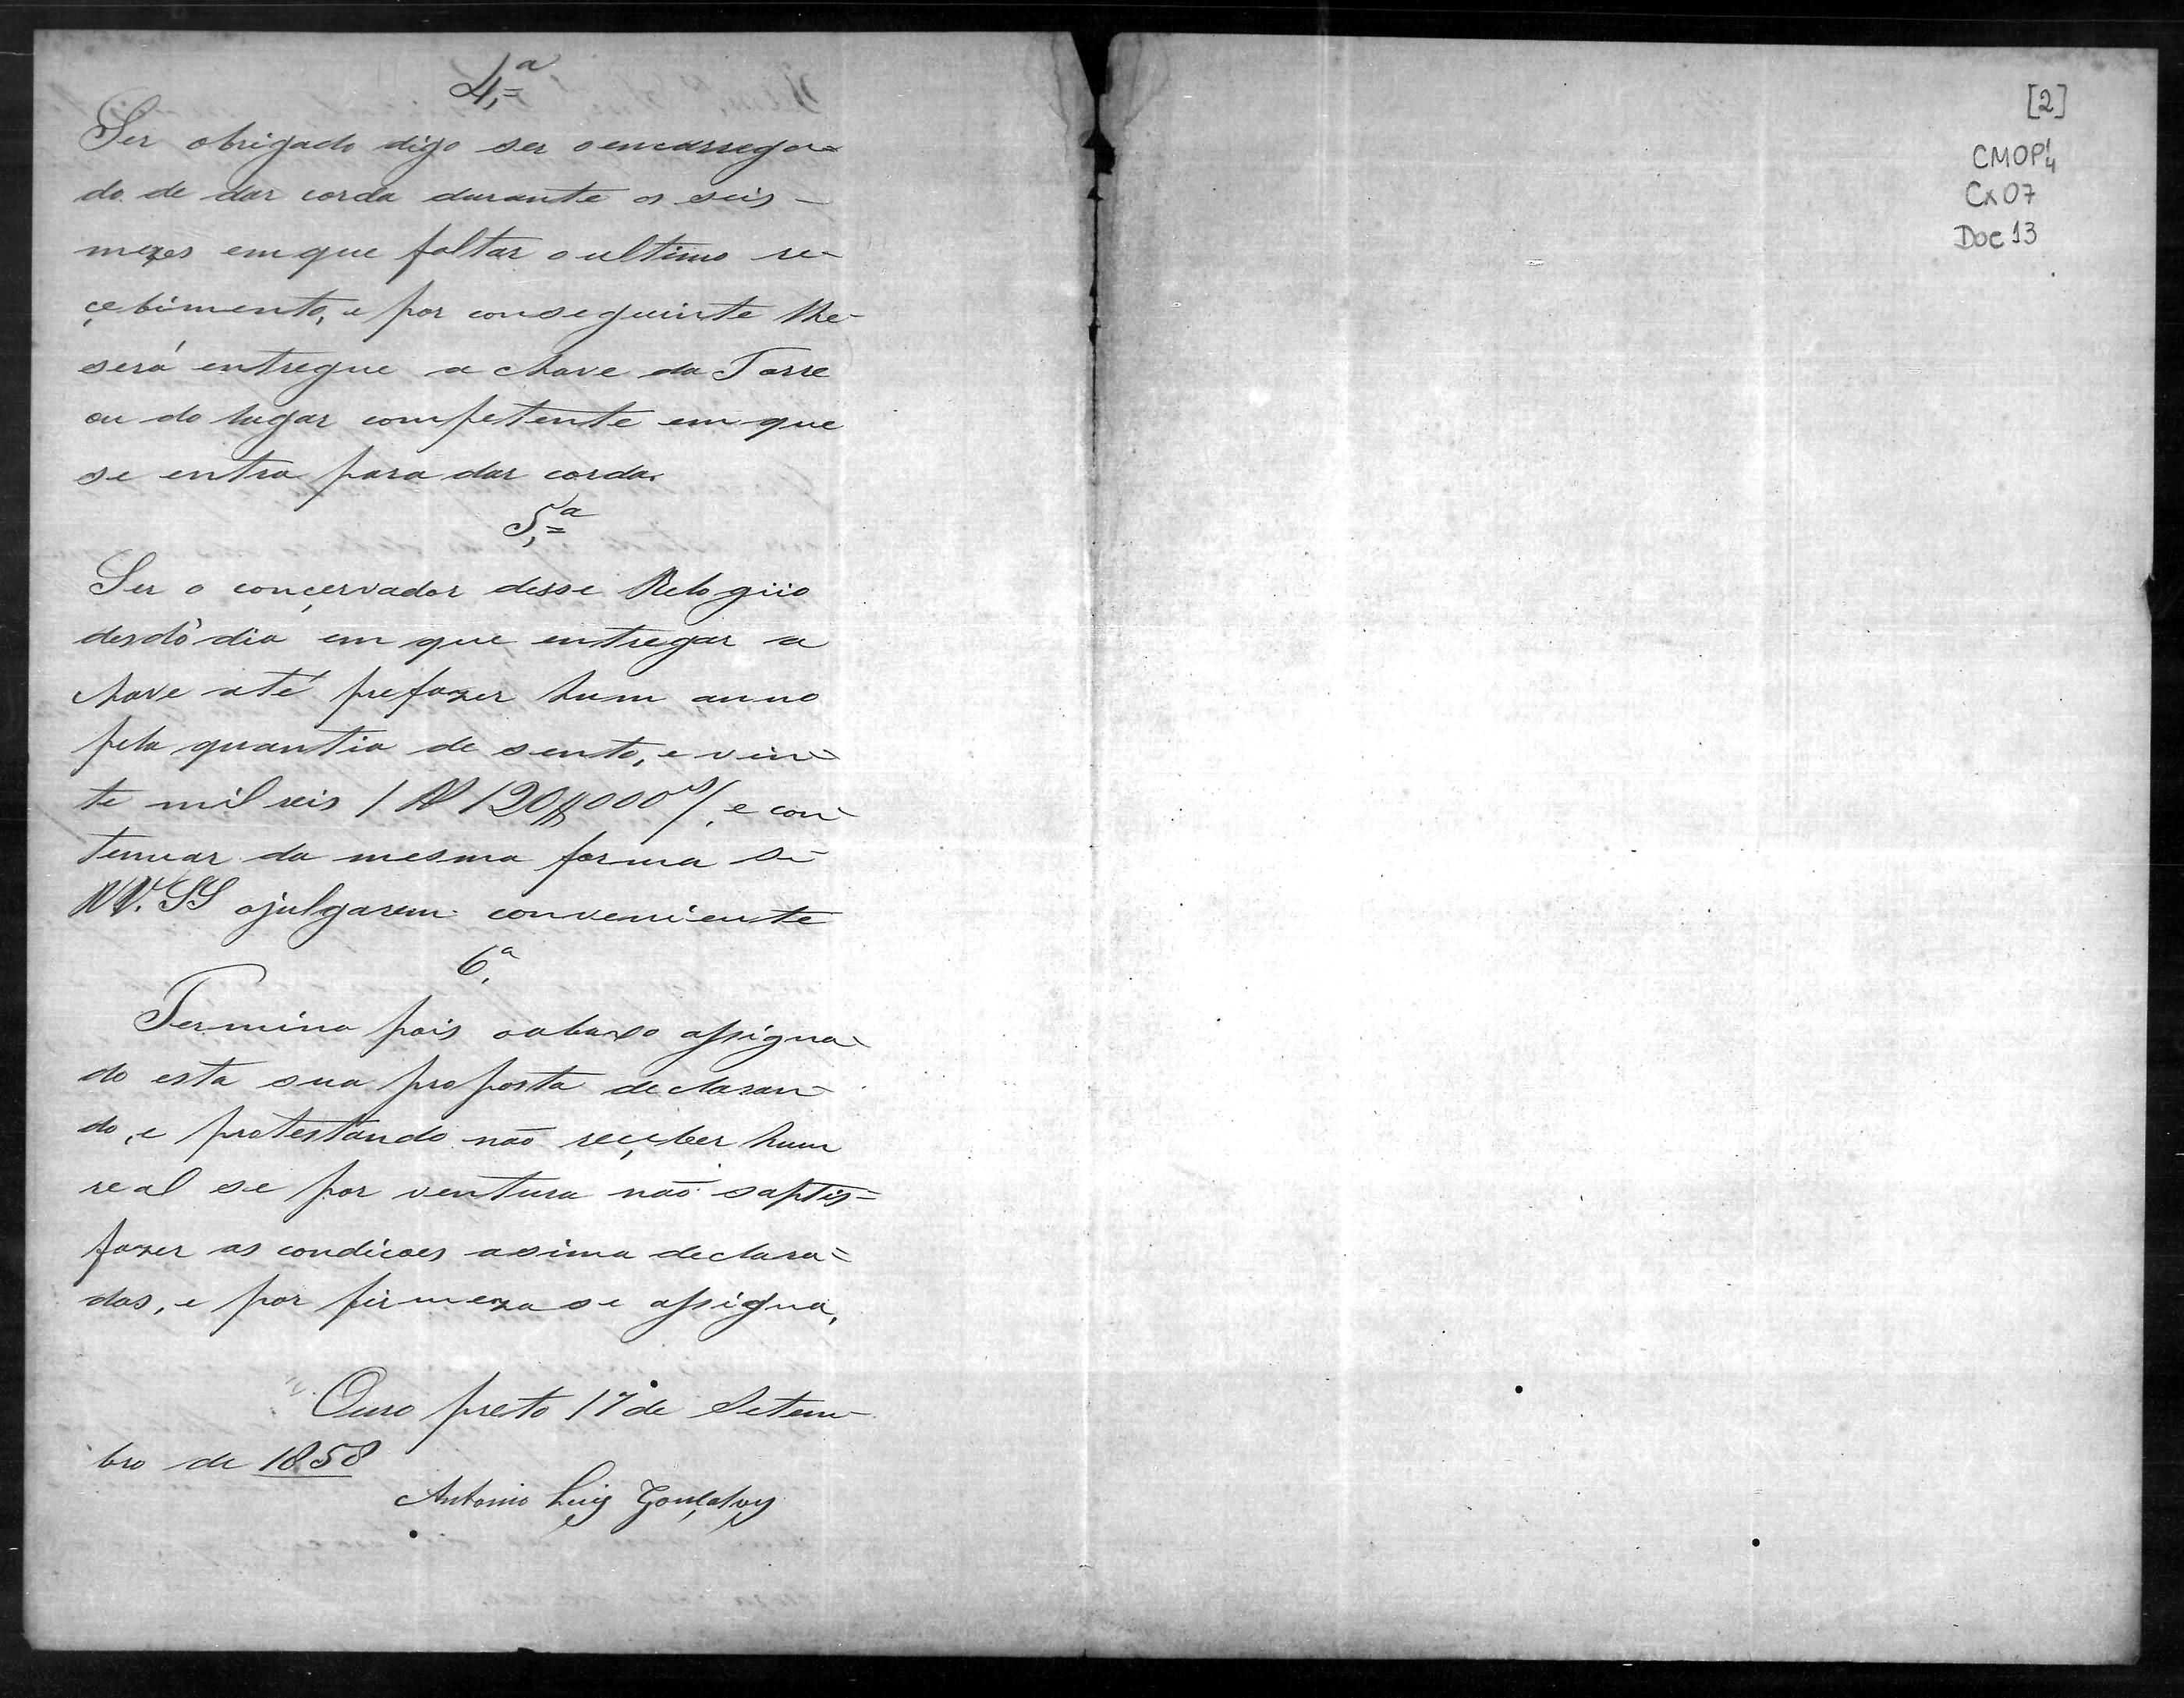 4.ª
Ser obrigado digo ser o encarrega-
do de dar corda durante os seis -
mezes em que faltar o ultimo re-
çebimento, e por conseguinte lhe-
será entregue a chave da Torre
ou do lugar competente em que
se entra para dar corda.
5.ª
Ser o conçervador desse Relogiio
desdo dia em que entregar a
chave até prefazer hum anno
pela quantia de sento, e vin-
te mil reis / R 120$000 rs/, e con-
tenuar da mesma forma se
VV. SS o julgarem conveniente
6.ª
Termina pois o abaxo assigna-
do esta sua proposta declaran-
do, e protestando não reçeber hum
real se por ventura não saptis=
fazer as condicoes asima declara=
das, e por firmeza se assigna,
Ouro preto 17 de Setem-
bro de 1858
Antonio Luiz Gonçalves
[2]
CMOP¼
Cx 07
Doc 13